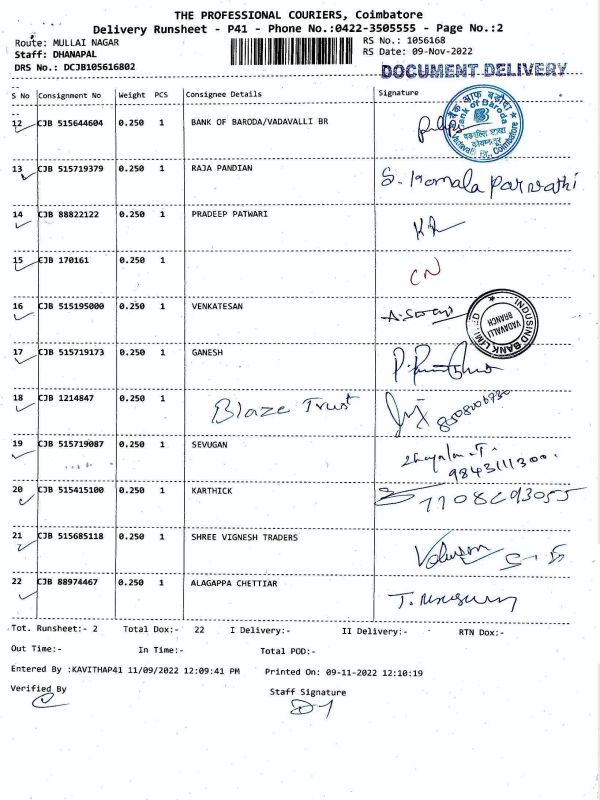 THE PROFESSIONAL COURIERS, Coimbatore
Delivery Runsheet - P41 - Phone No.:0422-3505555 - Page No.:2
Route: MULLAI NAGAR
RS No.: 1056168
Staff: DHANAPAL
RS Date: 09-Nov-2022
DRS No.: DCJB105616802
DOCUMENT DELIVERY
S No Consignment No Weight PCS Consignee Details Signature
12 CJB 515644604 0.250 1 BANK OF BARODA/VADAVALLI BR
बैंक ऑफ़ बड़ौदा
Bank of Baroda
Coimbatore
13 CJB 515719379 0.250 1 RAJA PANDIAN S. Komala Parvathi
14 CJB 88822122 0.250 1 PRADEEP PATWARI
15 CJB 170161 0.250 1 CN
16 CJB 515195000 0.250 1 VENKATESAN
INDUSIND BANK LIMITED
VADAVALLI
BRANCH
17 CJB 515719173 0.250 1 GANESH
18 CJB 1214847 0.250 1 Blaze Trust
19 CJB 515719087 0.250 1 SEVUGAN
9843111300.
20 CJB 515415100 0.250 1 KARTHICK
21 CJB 515685118 0.250 1 SHREE VIGNESH TRADERS
22 CJB 88974467 0.250 1 ALAGAPPA CHETTIAR
Tot. Runsheet:- 2 Total Dox:- 22 I Delivery:- II Delivery:- RTN Dox:-
Out Time:- In Time:- Total POD:-
Entered By :KAVITHAP41 11/09/2022 12:09:41 PM Printed On: 09-11-2022 12:10:19
Verified By
Staff Signature